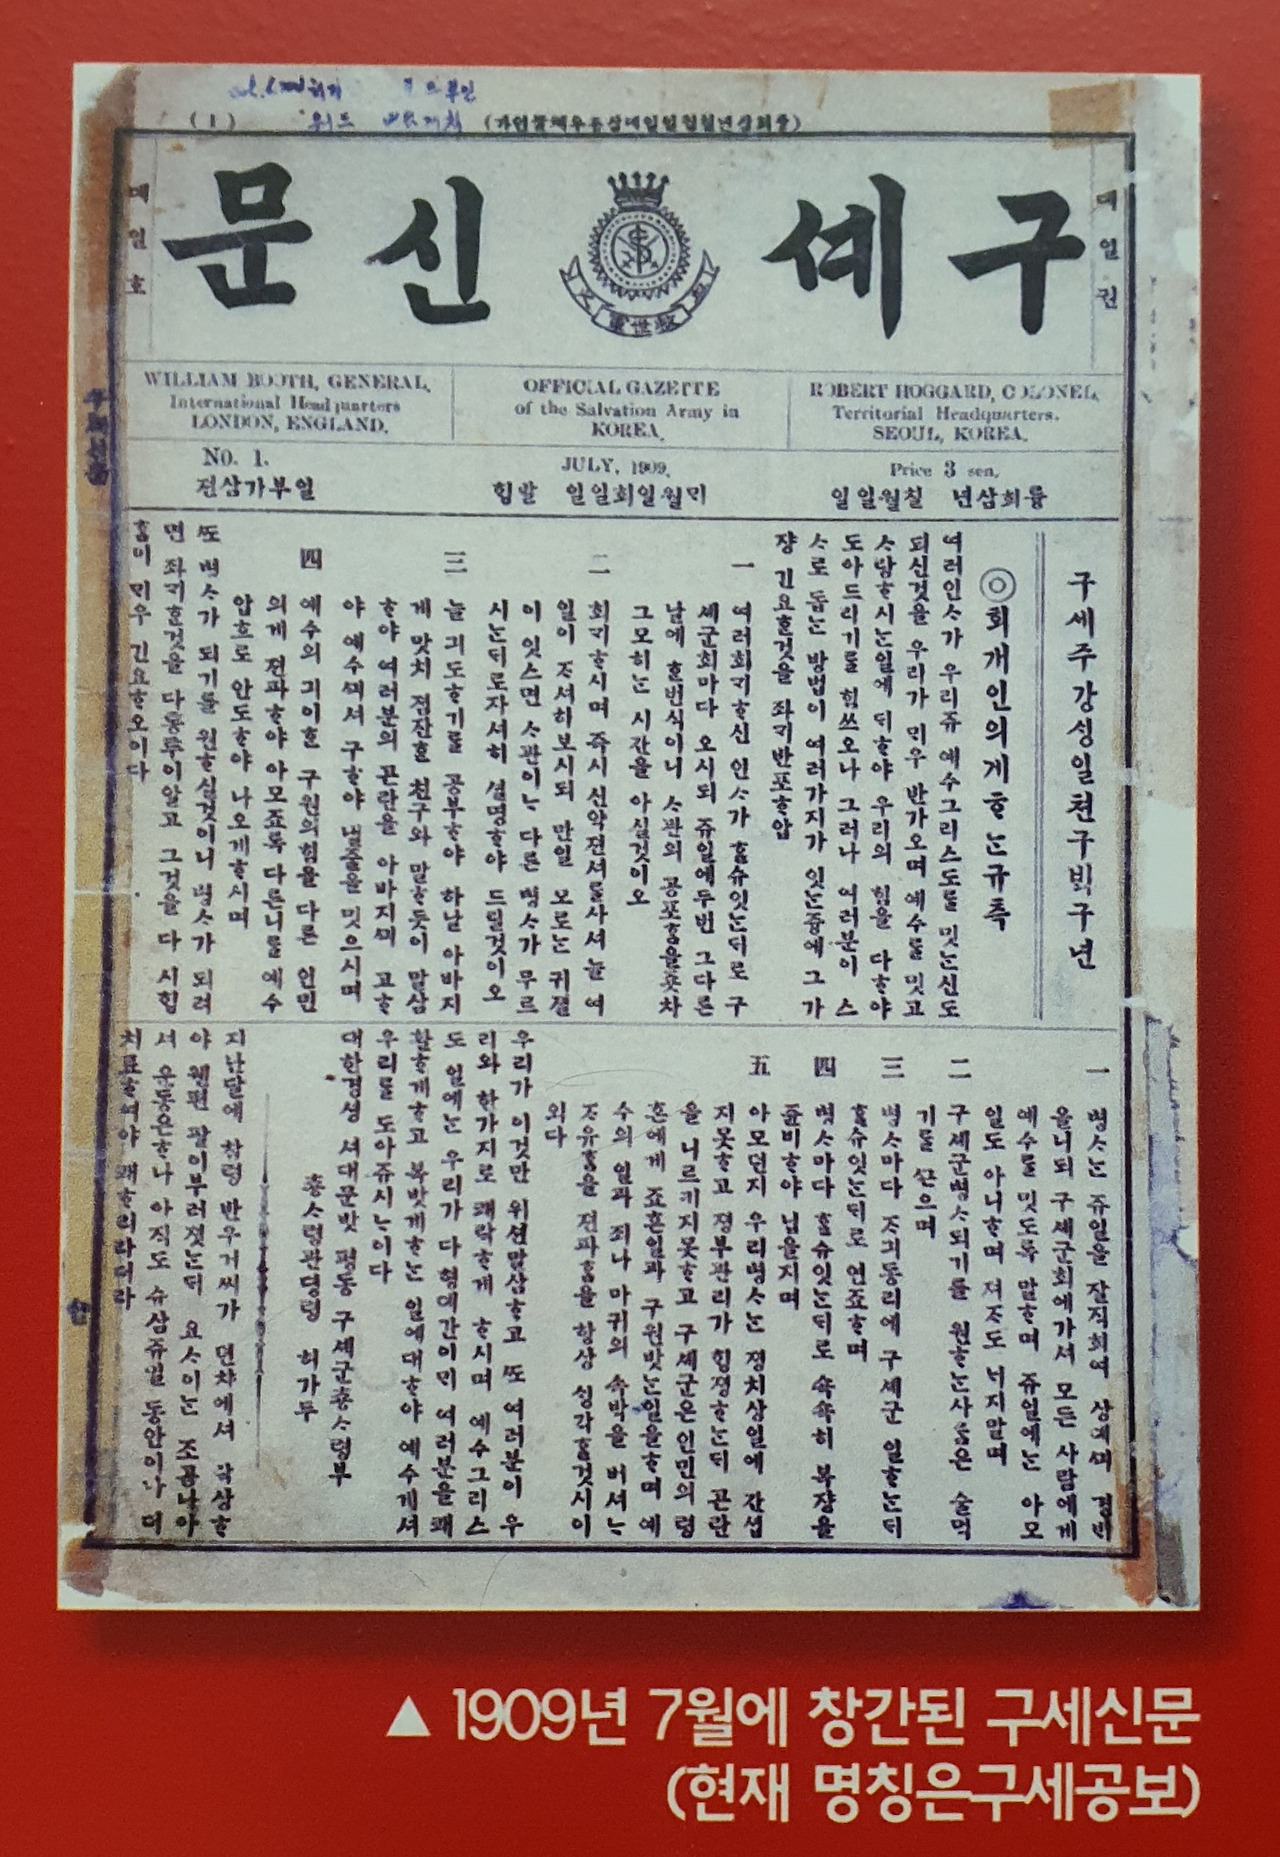 (1)
(가인물톄우둉삼뎨일일월칠년삼희륭)
구셰신문
뎨일권
뎨일호
救世軍
WILLIAM BOOTH, GENERAL.
International Headquarters
LONDON, ENGLAND.
OFFICIAL GAZETTE
of the Salvation Army in
KOREA.
ROBERT HOGGARD, COLONEL,
Territorial Headquarters.
SEOUL, KOREA.
NO. 1.
JULY, 1909.
Price 3 sen.
일부가삼젼
ᄆᆡ월일회일일 발ᄒᆡᆼ
륭희삼년 칠월일일
구세주강싱일쳔구ᄇᆡᆨ구년
◎회개인의게ᄒᆞᄂᆞᆫ규측
여러인ᄉᆞ가 우리쥬 예수그리스도를 밋ᄂᆞᆫ신도
되신것을 우리가 ᄆᆡ우 반가오며 예수를 밋고
ᄉᆞ랑ᄒᆞ시ᄂᆞᆫ일에 ᄃᆡᄒᆞ야 우리의 힘을 다ᄒᆞ야
도아드리기를 힘쓰오나 그러나 여러분이 스
ᄉᆞ로 돕ᄂᆞᆫ 방법이 여러가지가 잇ᄂᆞᆫ즁에 그가
쟝 긴요ᄒᆞᆫ것을 좌긔반포ᄒᆞ압
一
여러회긔ᄒᆞ신 인ᄉᆞ가 ᄒᆞᆯ슈잇ᄂᆞᆫᄃᆡ로 구
셰군회마다 오시되 쥬일에두번 그다른
날에 ᄒᆞᆫ번식이니 ᄉᆞ관의 공포ᄒᆞᆷ을좃차
그모히ᄂᆞᆫ 시간을 아실것이오
二
회긔ᄒᆞ시며 즉시 신약젼셔를사셔 늘 여
일이 ᄌᆞ셔히보시되 만일 모로ᄂᆞᆫ 귀졀
이 잇스면 ᄉᆞ관이ᄂᆞ 다른 병ᄉᆞ가 무르
시ᄂᆞᆫᄃᆡ로자셔히 셜명ᄒᆞ야 드릴것이오
三
늘 긔도ᄒᆞ기를 공부ᄒᆞ야 하날 아바지
게 맛치 졈잔ᄒᆞᆫ 친구와 말ᄒᆞ듯이 말삼
ᄒᆞ야 여러분의 곤란을 아바지ᄭᅴ 고ᄒᆞ
야 예수ᄭᅴ셔 구ᄒᆞ야 냄줄을 밋으시며
四
예수의 긔이ᄒᆞᆫ 구원의힘을 다른 인민
의게 젼파ᄒᆞ야 아모죠록 다른니를 예수
압흐로 안도ᄒᆞ야 나오게ᄒᆞ시며
ᄯᅩ 병ᄉᆞ가 되기를 원ᄒᆞ실것이니 병ᄉᆞ가 되려
면 좌긔ᄒᆞᆫ것을 다통투이알고 그것을 다 시ᄒᆡᆼ
ᄒᆞᆷ이 ᄆᆡ우 긴요ᄒᆞ오이다
一
병ᄉᆞᄂᆞᆫ 쥬일을 잘직희여
올니되 구셰군회에가셔 모든 사람에게
예수를 밋도록 말ᄒᆞ며 쥬일에ᄂᆞᆫ 아모
일도 아니ᄒᆞ며 져ᄌᆞ도 너지말며
二
구셰군병ᄉᆞ되기를 원ᄒᆞᄂᆞᆫ사ᄅᆞᆷ은 술먹
기를 ᄭᅳᆫ으며
三
병ᄉᆞ마다 ᄌᆞ긔동리에 구셰군 일ᄒᆞᄂᆞᆫᄃᆡ
ᄒᆞᆯ슈잇ᄂᆞᆫᄃᆡ로 연죠ᄒᆞ며
四
병ᄉᆞ마다 ᄒᆞᆯ슈잇ᄂᆞᆫᄃᆡ로 속속히 복쟝을
쥰비ᄒᆞ야 닙을지며
五
아모던지 우리병ᄉᆞᄂᆞᆫ 졍치상일에 간셥
지못ᄒᆞ고 졍부관리가 ᄒᆡᆼ졍ᄒᆞᄂᆞᆫᄃᆡ 곤란
을 니르키지못ᄒᆞ고 구셰군은인민의 령
혼에게 죠흔일과 구원밧ᄂᆞᆫ일을ᄒᆞ며 예
수의 일과 죄나 마귀의 속박을 버셔ᄂᆞ
ᄌᆞ유ᄒᆞᆷ을 젼파ᄒᆞᆷ을 항상 ᄉᆡᆼ각ᄒᆞᆯ것시이
외다
우리가 이것만 위션말삼ᄒᆞ고 ᄯᅩ 여러분이 우
리와 한가지로 쾌락ᄒᆞ게 ᄒᆞ시며 예수그리스
도 일에ᄂᆞᆫ 우리가 다 형뎨간이ᄆᆡ 여러분을 쾌
활ᄒᆞ게ᄒᆞ고 복밧게ᄒᆞᄂᆞᆫ 일에대ᄒᆞ야 예수게셔
우리를 도아쥬시ᄂᆞ이다
대한경셩 셔대문밧 평동 구셰군총ᄉᆞ령부
총ᄉᆞ령관뎡령 허가두
지난달에 참령 반우거씨가 뎐차에셔 락상ᄒᆞ
야 왼편 팔이부러졋ᄂᆞᆫᄃᆡ 요ᄉᆞ이ᄂᆞᆫ 조곰나아
셔 운동은ᄒᆞ나 아직도 슈삼쥬일 동안이나 더
치료ᄒᆞ여야 쾌ᄒᆞ리라더라
▲ 1909년 7월에 창간된 구세신문
(현재 명칭은구세공보)